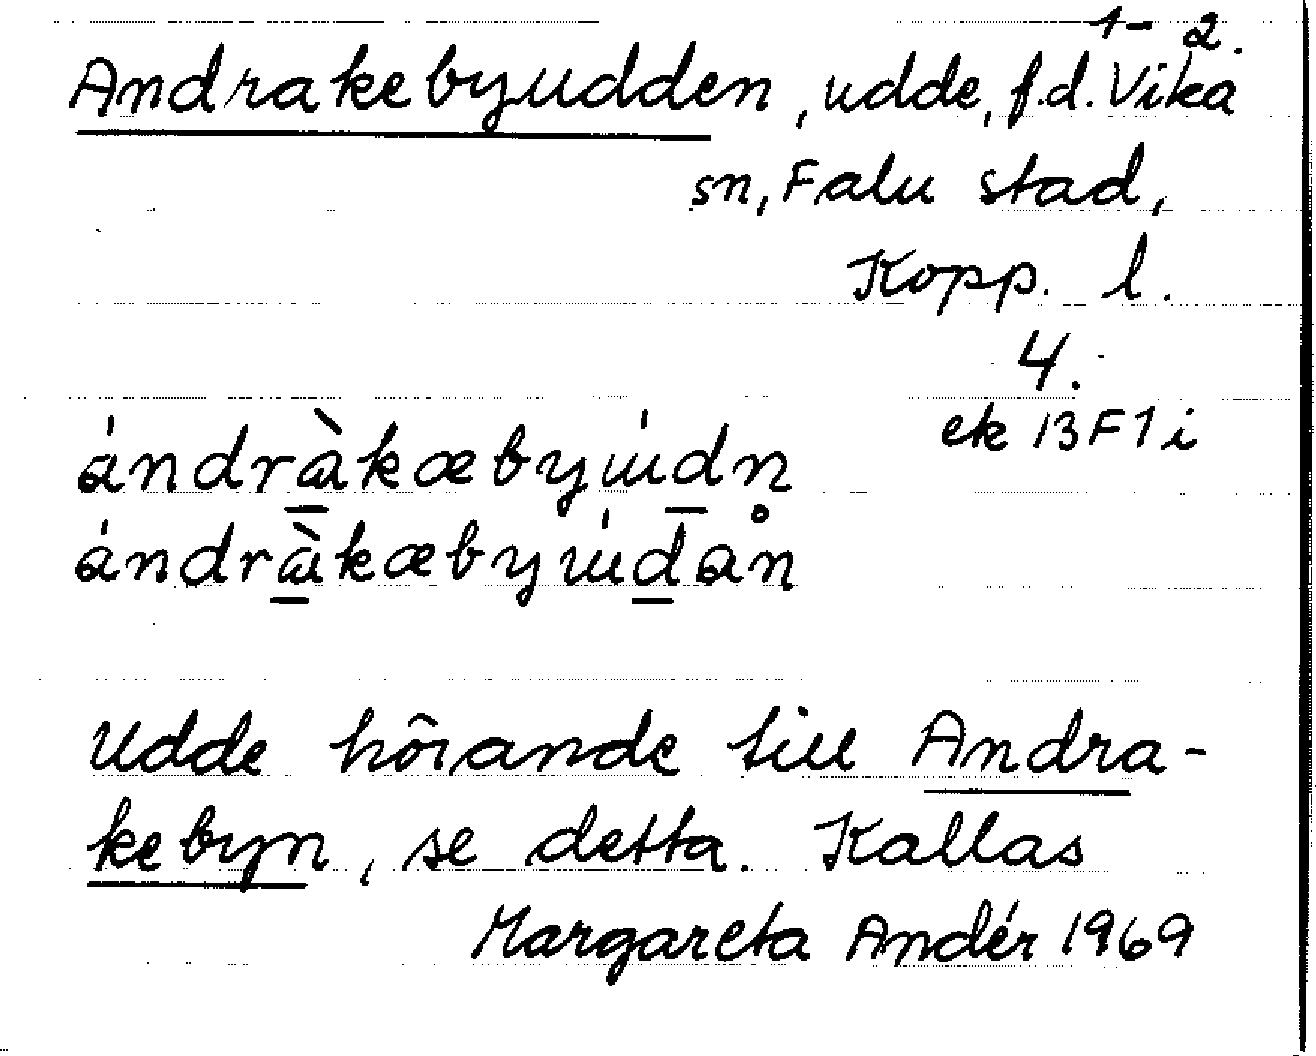 1-2.
Andrakebyudden, udde, f.d. Vika
sn, Falu stad,
Kopp. l.
4.
ek 13F1i
Udde hörande till Andra-
kebyn, se detta. Kallas
Margareta Andér 1969